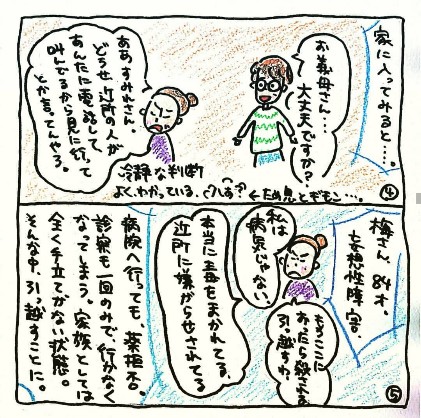 家に入ってみると…。
お義母さん…
大丈夫ですか?
ああすみれさん。
どうせ近所の人が
あんたに電話して、
叫んでるから見に行って
とか言ってんやろ。
冷静な判断
よくわかっている。
ハあ?
←ため息とギモン…。
④
梅さん 84才。
妄想性障害。
私は
病気じゃない。
もうここに
おったら殺される
引っ越すわ。
本当に毒をまかれてる。
近所に嫌がらせされてる
病院へ行っても、薬拒否。
診察も一回のみで行かなく
なってしまう。家族としては
全く手立てがない状態。
そんな中、引っ越すことに。
⑤